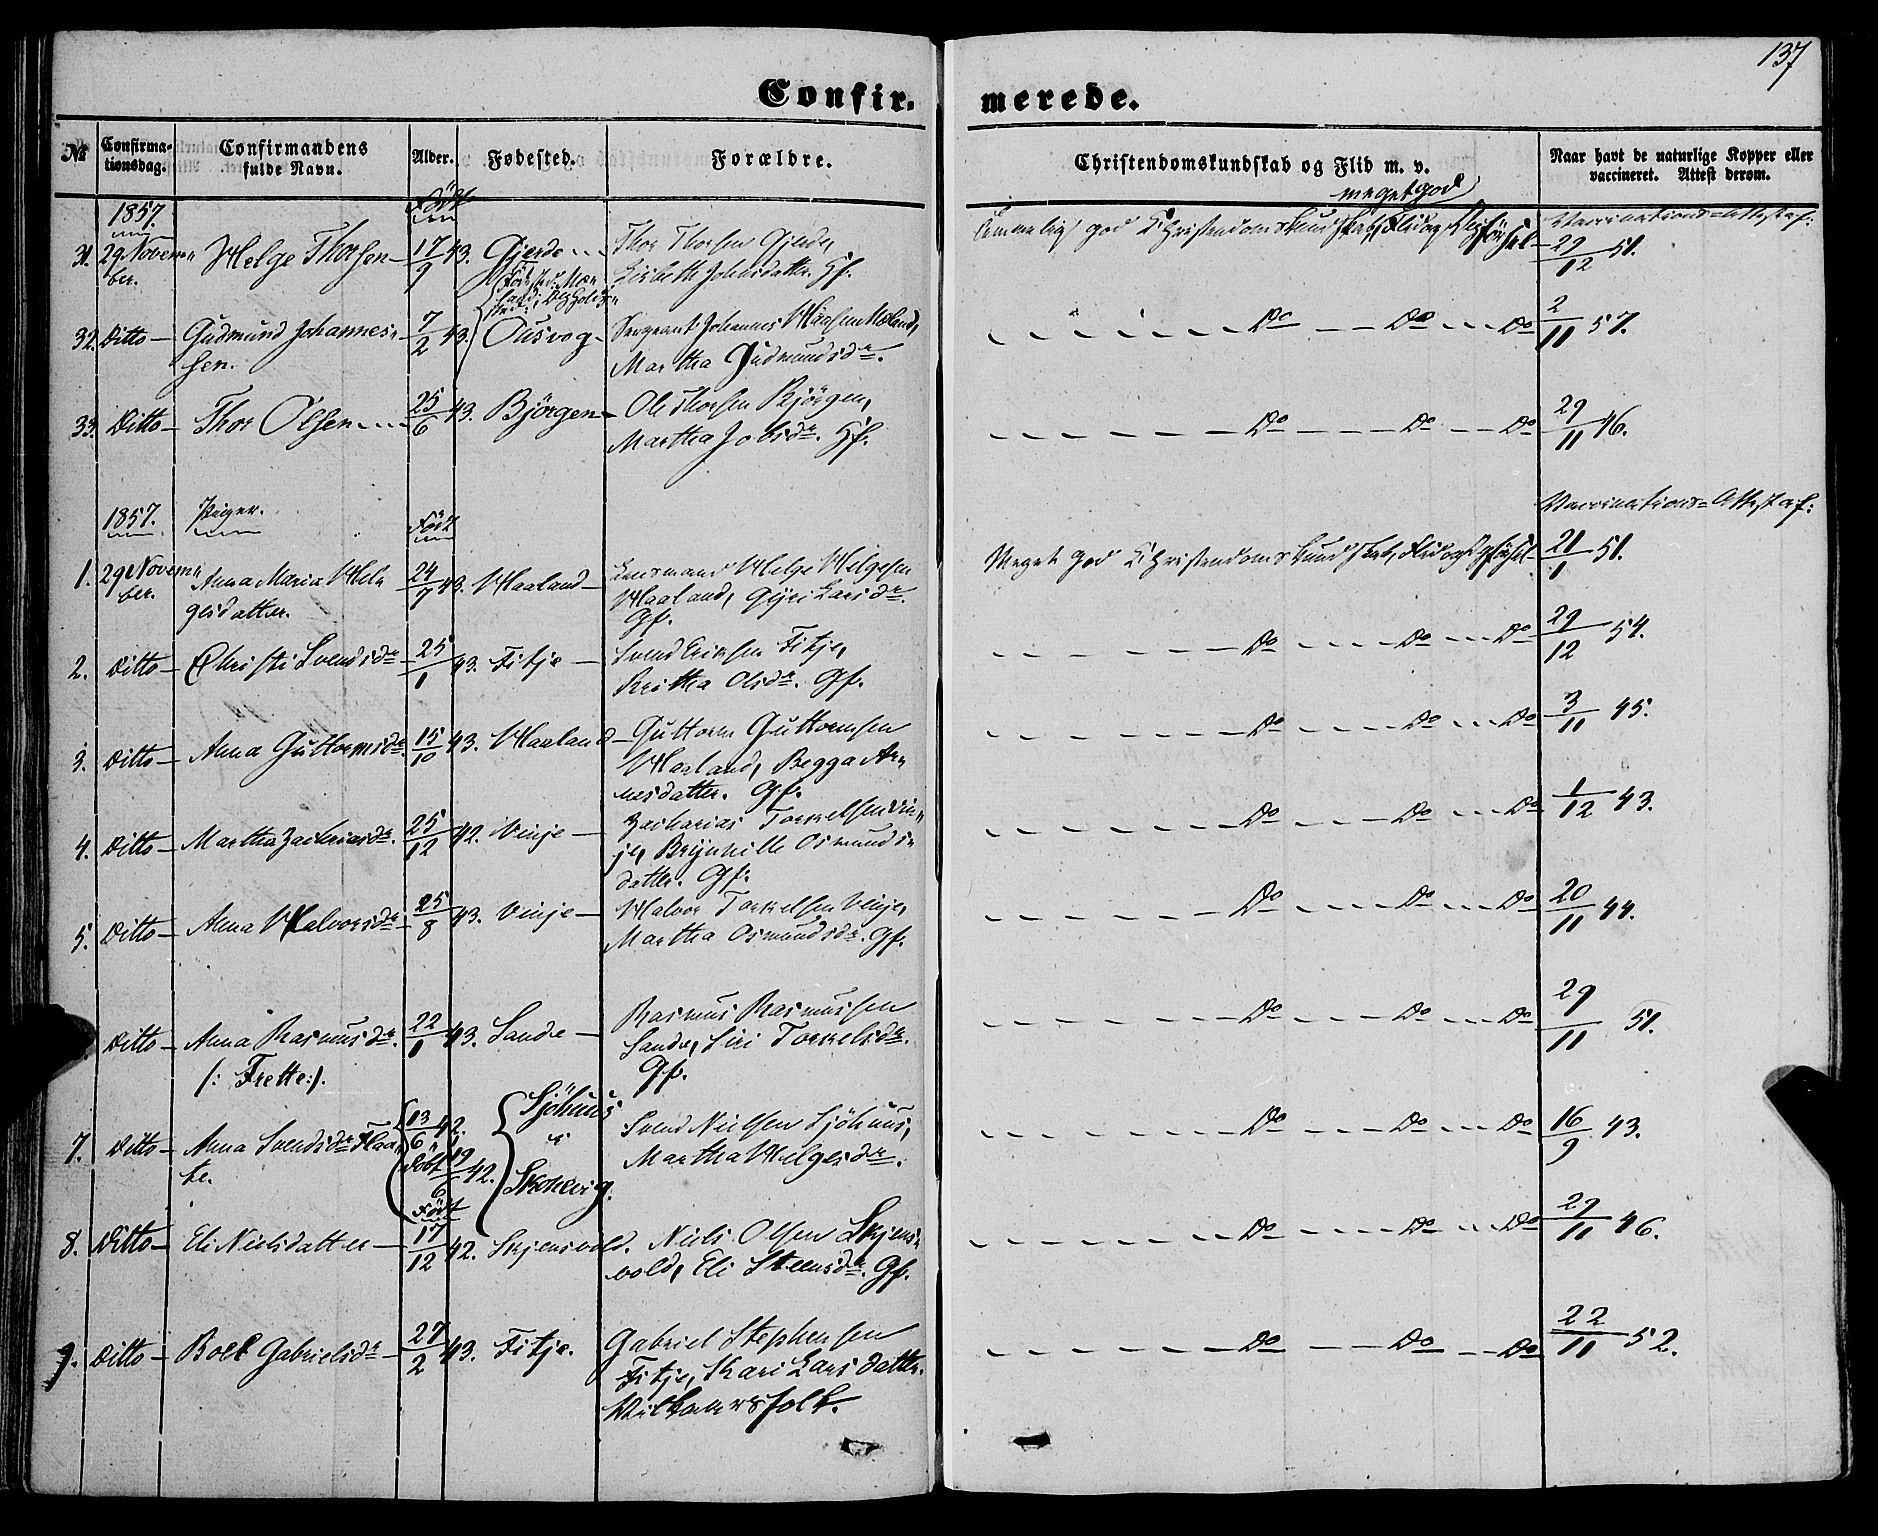 137
Confir- merede.
№ Confirma-
tionsdag. Confirmandens
fulde Navn. Alder. Fødested. Forældre. Christendomskundskab og Flid m. v. Naar havt de naturlige Kopper eller
vaccineret. Attest derom.
1857. Født meget god Vaccinations=Attest af:
31. 29 Novem„
ber. Helge Thorsen 17/9 43. Gjerde Thor Thorsen Gjerde,
Lisbeth Johnsdatter. Gf. Temmelig god Christendomskundskab, Flid og Opførsel 29/12 51.
32. Ditto Gudmund Johannes„
sen. 7/2 43. Ousvog Sergeant Johannes Hansen Mæland,
Martha Gudmundsdr. Do Do Do 2/11 57.
33. Ditto Thor Olsen 25/6 43. Bjørgen Ole Thorsen Bjørgen,
Martha Jobsdr. Gf. Do Do Do 29/11 46.
1857. Piger. Født Vaccinations=Attest af:
1. 29 Novem„
ber. Anna Maria Hel„
gesdatter. 24/7 43. Haaland Lensmand Helge Helgesen
Haaland, Gyri Larsdr.
Gf. Meget god Christendomskundskab, Flid og Opførsel 21/1 51.
2. Ditto Christi Svendsdr 25/1 43. Fitje Svend Eriksen Fitje,
Britha Olsdr. Gf. Do Do Do 29/12 54.
3. Ditto Anna Guttormsdr. 15/10 43. Haaland Guttorm Guttormsen
Haaland, Begga Ar„
nesdatter. Gf. Do Do Do 3/11 45.
4. Ditto Martha Zachariasdr. 25/12 42. Vinje Zacharias Torkelsen Vin„
je, Brynhille Osmunds„
datter. Gf. Do Do Do 1/12 43.
5. Ditto Anna Halvorsdr 25/8 43. Vinje Halvor Torkelsen Vinje,
Martha Osmundsdr. Gf. Do Do Do 20/11 44.
Ditto Anna Rasmusdr.
/: Frette:/. 22/1 43. Sande Rasmus Rasmussen
Sande, Siri Torkelsdr.
Gf. Do Do Do 29/11 51.
7. Ditto Anna Svendsdr Flaa„
te. 13/6 42.
Døbt 19/6 42. Sjöhuus
i
Skonevig. Svend Nielsen Sjöhuus,
Martha Helgesdr. Do Do Do 16/9 43.
8. Ditto Eli Nielsdatter Født
17/12 42. Skjensvold. Niels Olsen Skjens„
vold, Eli Steensdr. Gf. Do Do Do 29/11 46.
9. Ditto Boel Gabrielsdr 27/2 43. Fitje. Gabriel Stephensen
Fitje, Kari Larsdatter.
Huusmandsfolk. Do Do Do 22/11 52.